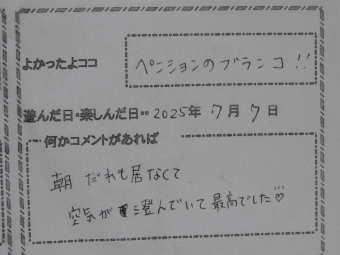 よかったよココ ペンションのブランコ!!
遊んだ日・楽しんだ日・・ 2025年 7月 7日
何かコメントがあれば
朝 だれも居なくて
空気が澄んでいて最高でした♡